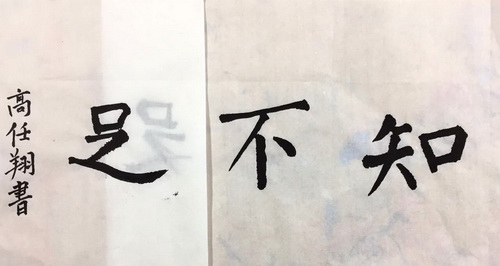 知不足
高任翔書